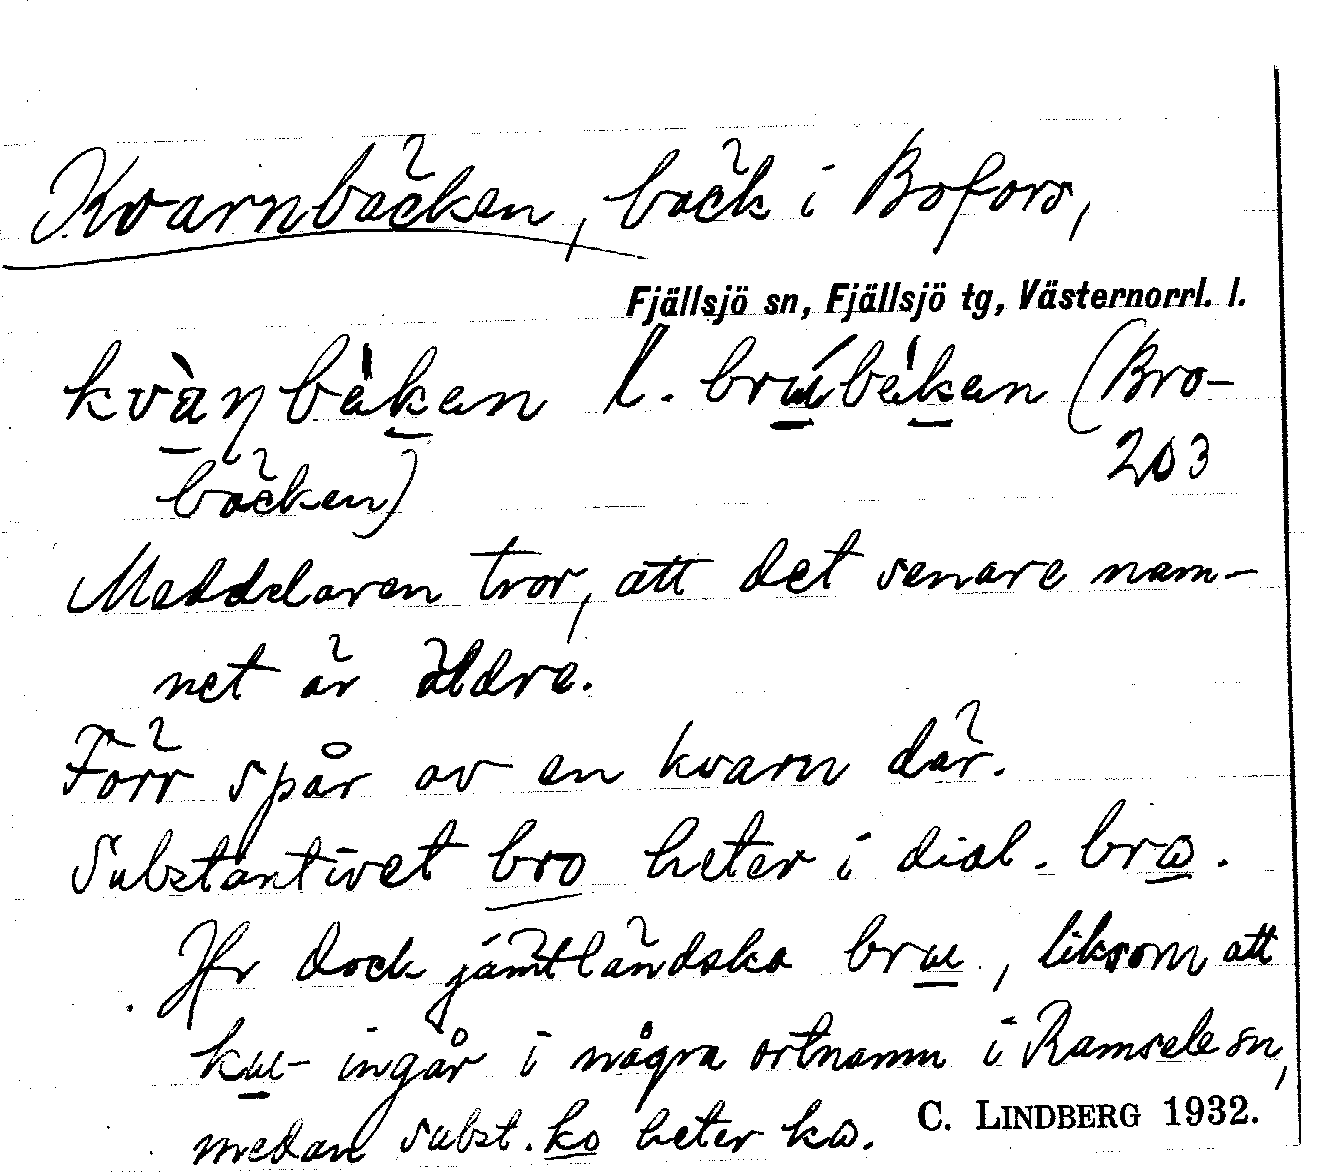 Kvarnbäcken, bäck i Bofors,
Fjällsjö sn, Fjällsjö tg, Västernorrl. l.
l. (Bro-
203
bäcken)
Meddelaren tror, att det senare nam-
net är äldre.
Förr spår av en kvarn där.
Substantivet bro heter i dial.
Jfr dock jämtländska bru, liksom att
ku- ingår i några ortnamn i Ramsele sn,
medan subst. ko heter
C. LINDBERG 1932.